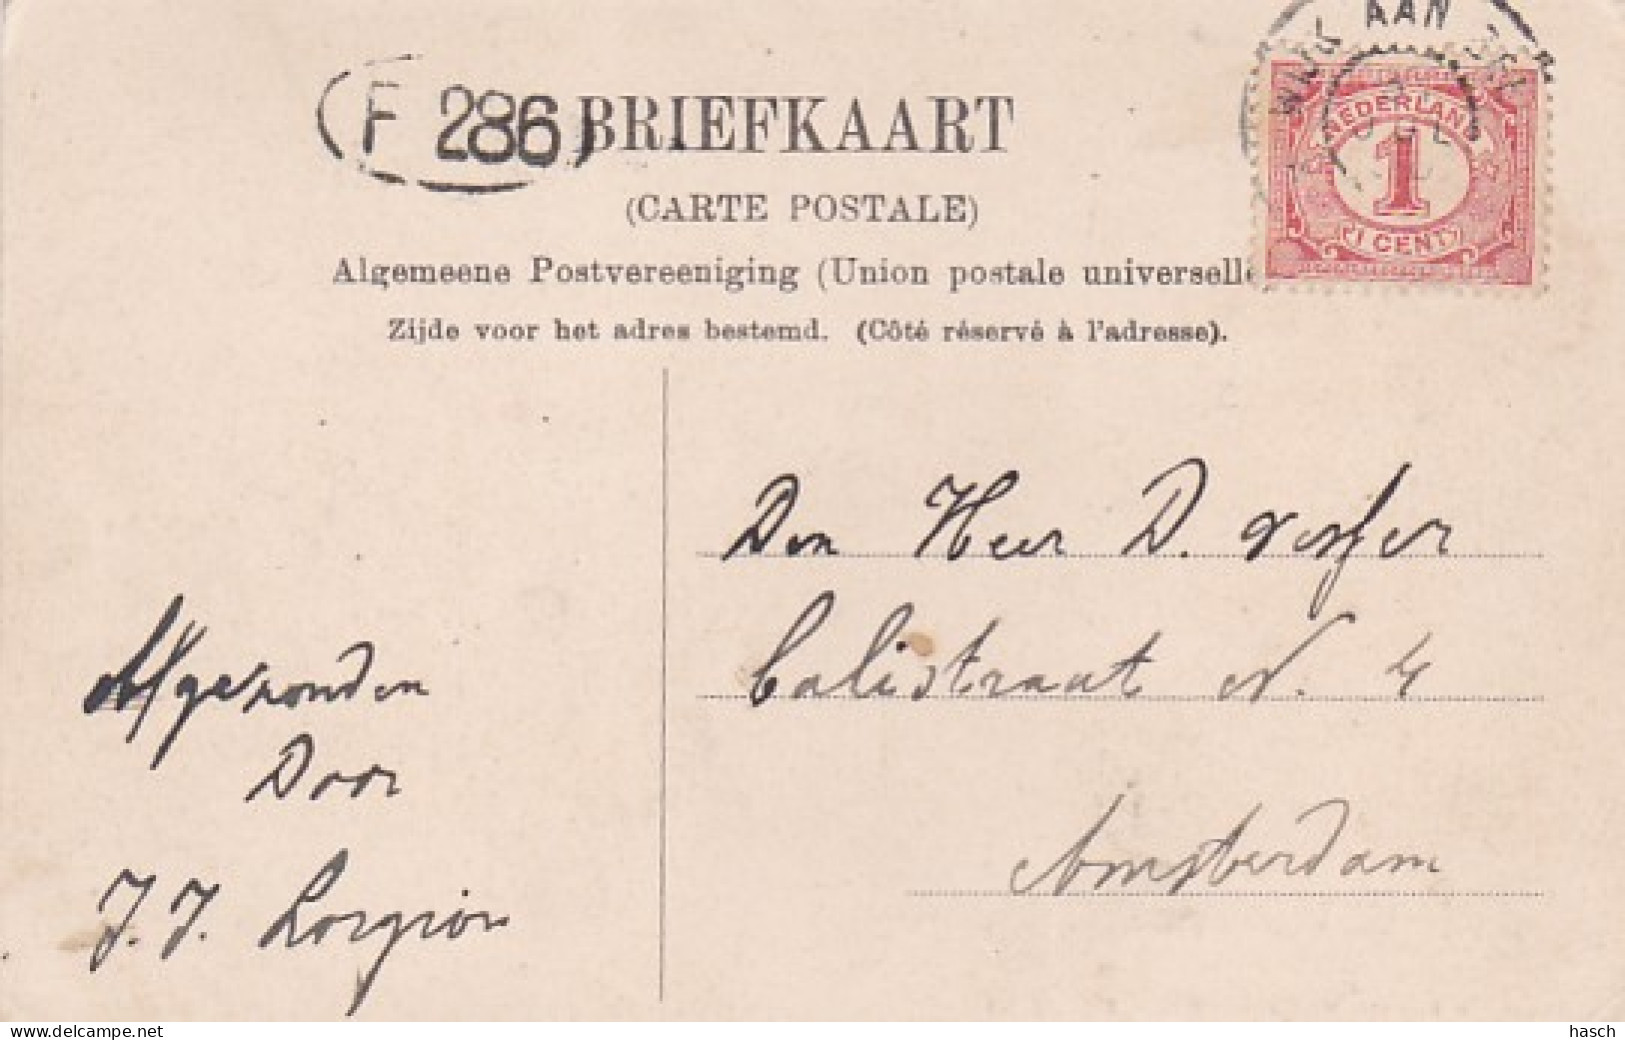 WIJK AAN ZEE
F 286
BRIEFKAART
(CARTE POSTALE)
NEDERLAND
1
1 CENT
Algemeene Postvereeniging (Union postale universelle
Zijde voor het adres bestemd. (Côté réservé à l'adresse).
Den Heer D.
Balistraat N. 4
Amsterdam
Afgezonden
Door
J. J. Lorgion
delcampe.net
hasch